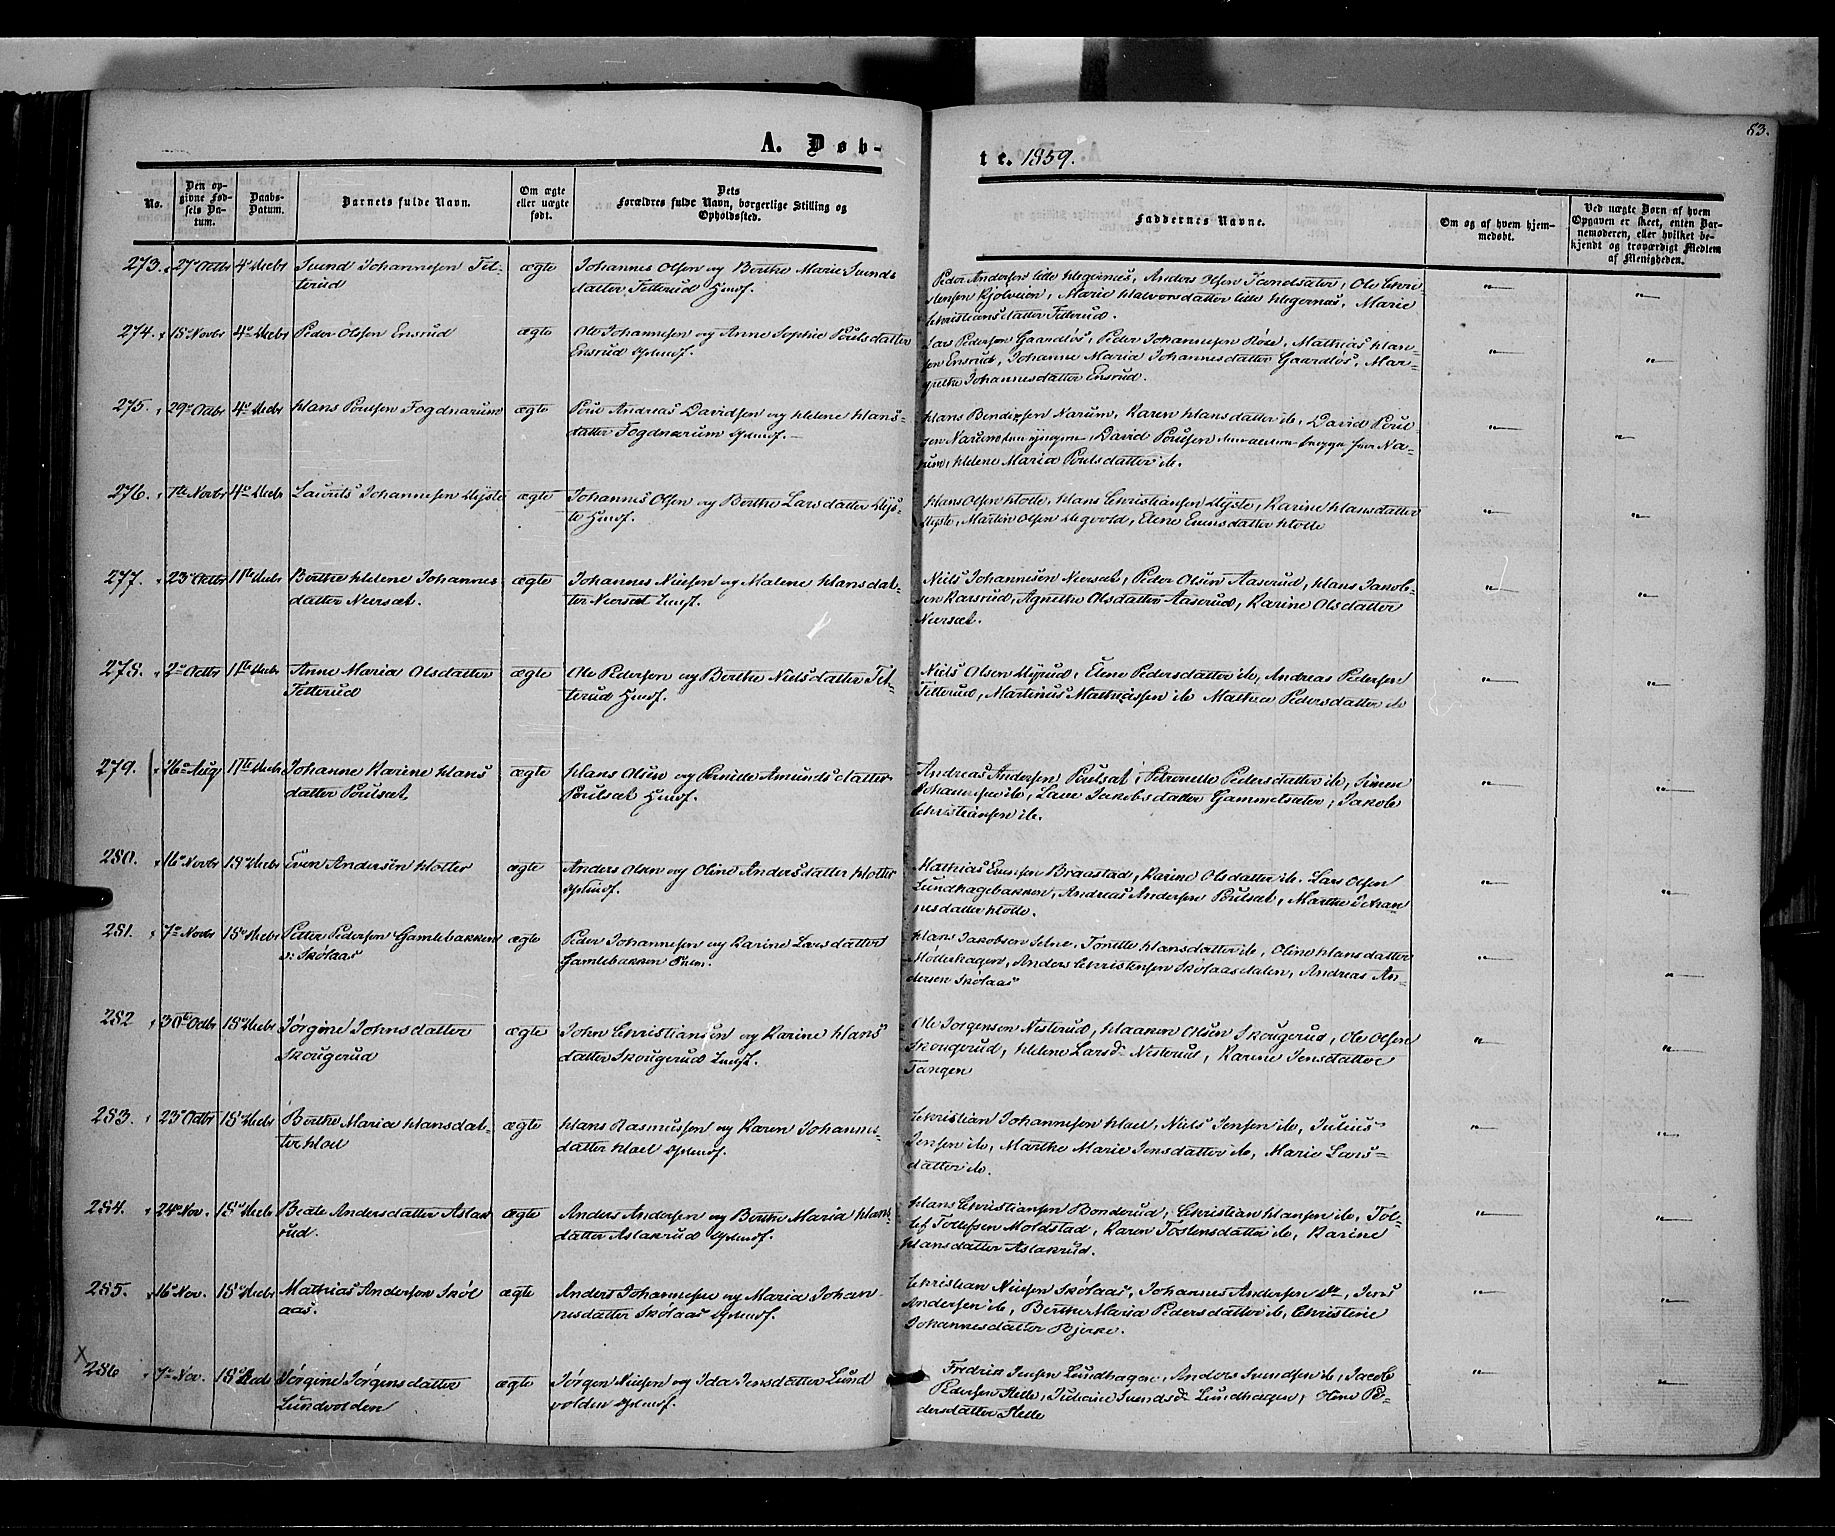 83.
A. Døb-
te. 1859.
No.
Den op-
givne Fød-
sels Da-
tum.
Daabs-
Datum.
Barnets fulde Navn.
Om ægte
eller uægte
født.
Dets
Forældres fulde Navn, borgerlige Stilling og
Opholdssted.
Faddernes Navne.
Om og af hvem hjem-
medøbt.
Ved uægte Børn af hvem
Opgaven er skeet, enten Bar-
nemoderen, eller hvilket be-
kjendt og troværdigt Medlem
af Menigheden.
273. 27 Octbr 4 Decbr
Svend Johannesen Fet-
terud
ægte
Johannes Olsen og Berthe Marie Svends
datter Fetterud Husf.
Peder Andersen lille Hegernæs, Anders Olsen, Ole Chri
stensen, Marie Halvorsdatter lille Hegernæs, Marie
Christiansdatter Fetterud.
274. 18 Novbr 4 Decbr
Peder Olsen Ensrud
ægte
Ole Johannesen og Anne Sophie Poulsdatter
Ensrud
Lars Pedersen Gaardløs, Peder Johannesen, Mathias Han-
sen Ensrud, Johanne Maria Johannesdatter Gaardløs, Mar-
grethe Johannesdatter Ensrud.
275. 29 Octbr 4 Decbr
Hans Poulsen Fogdnarum
ægte
Poul Andreas Davidsen og Helene Hans-
datter Fogdnarum
Hans Bendixsen Narum, Karen Hansdatter ib, David Poul
sen Narum den yngre, David Poulsen den ældre begge fra Na-
rum, Helene Maria Poulsdatter ib.
276. 1te Novbr 4 Decbr
Laurits Johannesen Dyste
ægte
Johannes Olsen og Berthe Larsdatter Dys-
te Husf.
Hans Olsen Holte, Hans Christiansen Dyste, Karine Hansdatter
Dyste, Martin Olsen, Elene Evensdatter Holte
277. 23 Octbr 11te Decbr
Berthe Helene Johannes
datter Neersæt.
ægte
Johannes Nielsen og Malene Hansdat-
ter Neersæt
Niels Johannesen Neersæt, Peder Olsen Aaserud, Hans Jakob-
sen Karsrud, Agnethe Olsdatter Aaserud, Karine Olsdatter
Neersæt.
278. 2 Octbr 11te Decbr
Anne Maria Olsdatter
Fetterud
ægte
Ole Pedersen og Berthe Nielsdatter Fet-
terud Husf.
Niels Olsen Dyrud, Elene Pedersdatter ib, Andreas Pedersen
Fetterud, Martinus Mathiassen ib Mathea Pedersdatter ib
279. 16 Aug 11te Decbr
Johanne Karine Hans
datter Poulsæt
ægte
Hans Olsen og Pernille Amundsdatter
Poulsæt Husf.
Andreas Andersen Poulsæt, Petronelle Pedersdatter ib, Simen
Johannesen ib, Jakobsdatter Gammelsæter, Jakob
Christiansen ib.
280. 16 Novbr 18 Decbr
Even Andersen Holte
ægte
Anders Olsen og Oline Andersdatter Holte
Mathias Evensen Braastad, Karine Olsdatter ib. Lars Olsen
Lundhagebakken, Andreas Andersen Poulsæt, Marthe Johan
nesdatter Holte.
281. 7 Novbr 18 Decbr
Petter Pedersen Gamlebakken
v: Skølaas
ægte
Peder Johannesen og Karine Larsdatter
Gamlebakken
Hans Jakobsen, Tonette Hansdatter ib, Oline Hansdatter
Anders Christensen Skølaasdalen, Andreas An-
dersen Skølaas
282 30te Octbr 18 Decbr
Jørgine Johnsdatter
Skougerud
ægte
John Christiansen og Karine Hans
datter Skougerud
Ole Jorgensen Nesterud, Haaken Olsen Skougerud, Ole Olsen
Skougerud, Helene Larsd. Nesterud, Karine Jensdatter
Tangen
283. 23 Octbr 18 Decbr
Berthe Maria Hansdat-
ter Hoel
ægte
Hans Rasmussen og Karen Johannes-
datter Hoel
Christian Johannesen Hoel, Niels Jensen ib, Julius
Jensen ib, Marthe Marie Jensdatter ib, Marie Lars-
datter ib.
284. 24 Nov. 18 Decbr
Beate Andersdatter Aslak
rud.
ægte
Anders Andersen og Berthe Maria Hans
datter Aslakrud
Hans Christiansen Bonderud, Christian Hansen ib, Tol-
lef Tollefsen Moldstad, Karen Tostensdatter ib, Karine
Hansdatter Aslakrud.
285. 16 Nov. 18 Decbr
Mathias Andersen Skøl
aas.
ægte
Anders Johannesen og Maria Johan
nesdatter Skølaas
Christian Nielsen Skølaas, Johannes Andersen do, Jens
Andersen ib, Berthe Maria Pedersdatter ib, Christine
Johannesdatter Bjerke.
x
286 7 Nov. 18 Decbr
Jørgine Jørgensdatter
Lundvolden
ægte
Jørgen Nielsen og Ida Jensdatter Lund
volden
Fredrik Jensen Lundhagen, Anders Svendsen ib, Jacob
Pedersen, Juliane Svendsd. Lundhagen, Oline Pe-
dersdatter